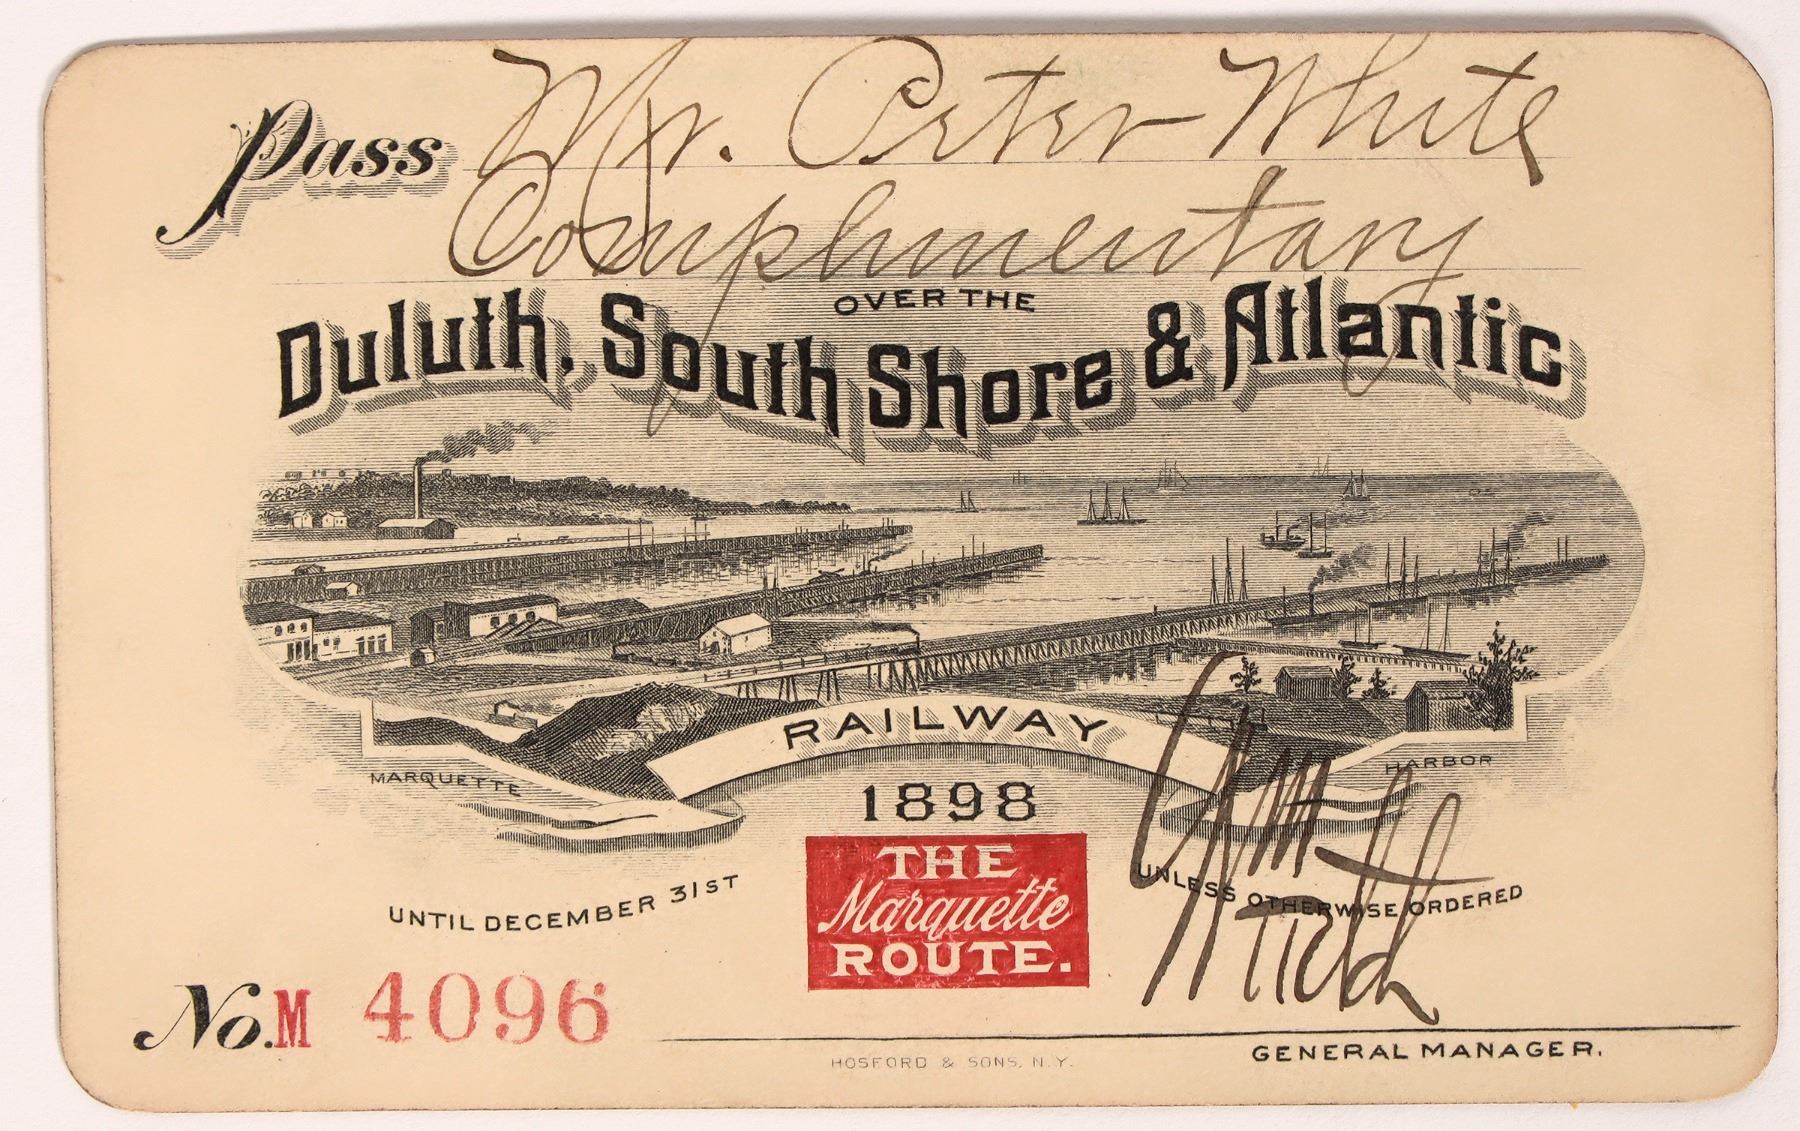 Pass Mr. Peter White
Complimentary
OVER THE
Duluth, South Shore & Atlantic
RAILWAY
MARQUETTE
HARBOR
1898
THE
Marquette
ROUTE.
UNTIL DECEMBER 31ST
UNLESS OTHERWISE ORDERED
No. M 4096
GENERAL MANAGER.
HOSFORD & SONS, N.Y.